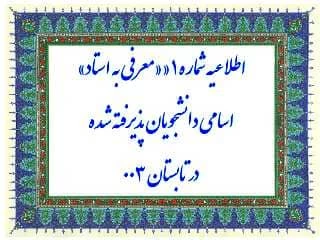 اطلاعیه شماره ۱««معرفی به استاد»
اسامی دانشجویان پذیرفته شده
در تابستان ۰۰۳